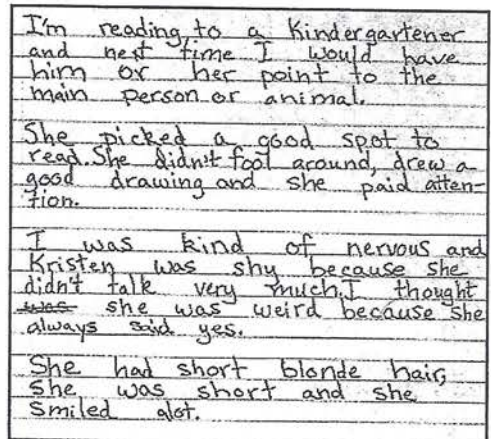 I'm reading to a Kindergartener
and next time I would have
him or her point to the
main person or animal.
She picked a good spot to
read. She didn't fool around, drew a
good drawing and she paid atten-
tion.
I was kind of nervous and
Kristen was shy because she
didn't talk very much. I thought
was she was weird because she
always said yes.
She had short blonde hair,
she was short and she
smiled alot.